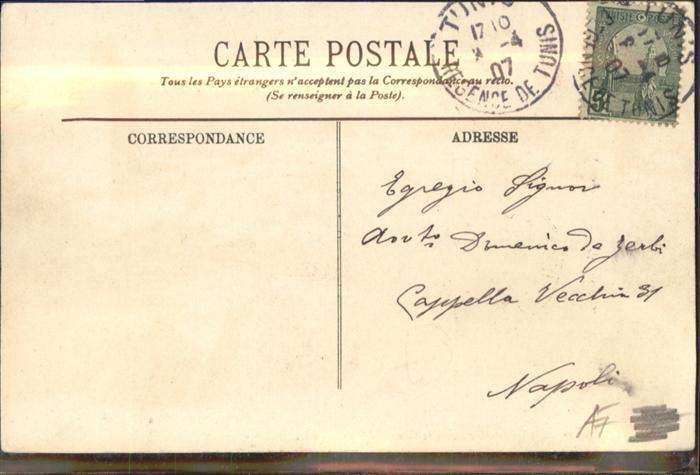 CARTE POSTALE
Tous les Pays étrangers n'acceptent pas la Correspondance au recto.
(Se renseigner à la Poste).
TUNIS
17 10
4
07
REGENCE DE TUNIS
CORRESPONDANCE
ADRESSE
Egregio Signor
Dott. Domenico de Zerbi
Cappella Vecchia 31
Napoli